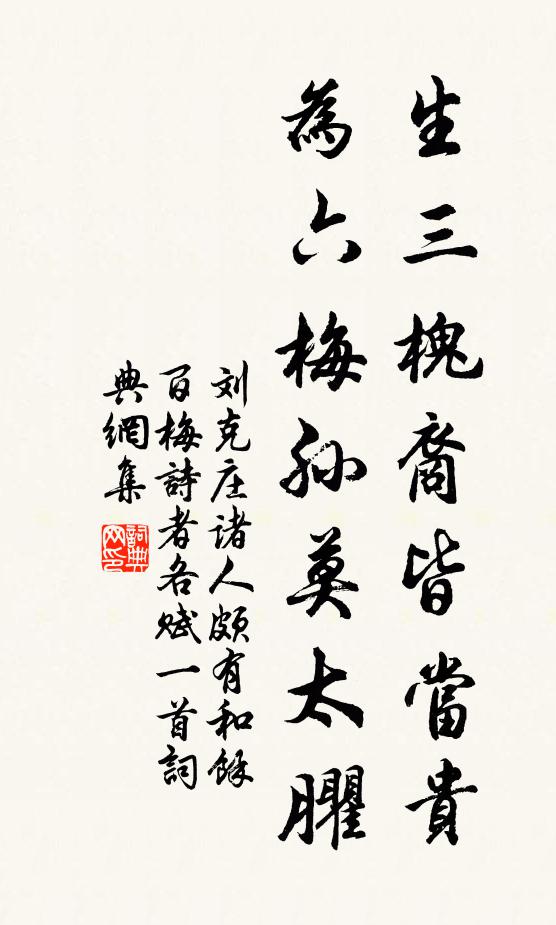 生三槐裔皆當貴
為六梅孫莫太臞
刘克庄诸人頗有和餘
百梅詩者各赋一首詞
典網集
詞典
网印